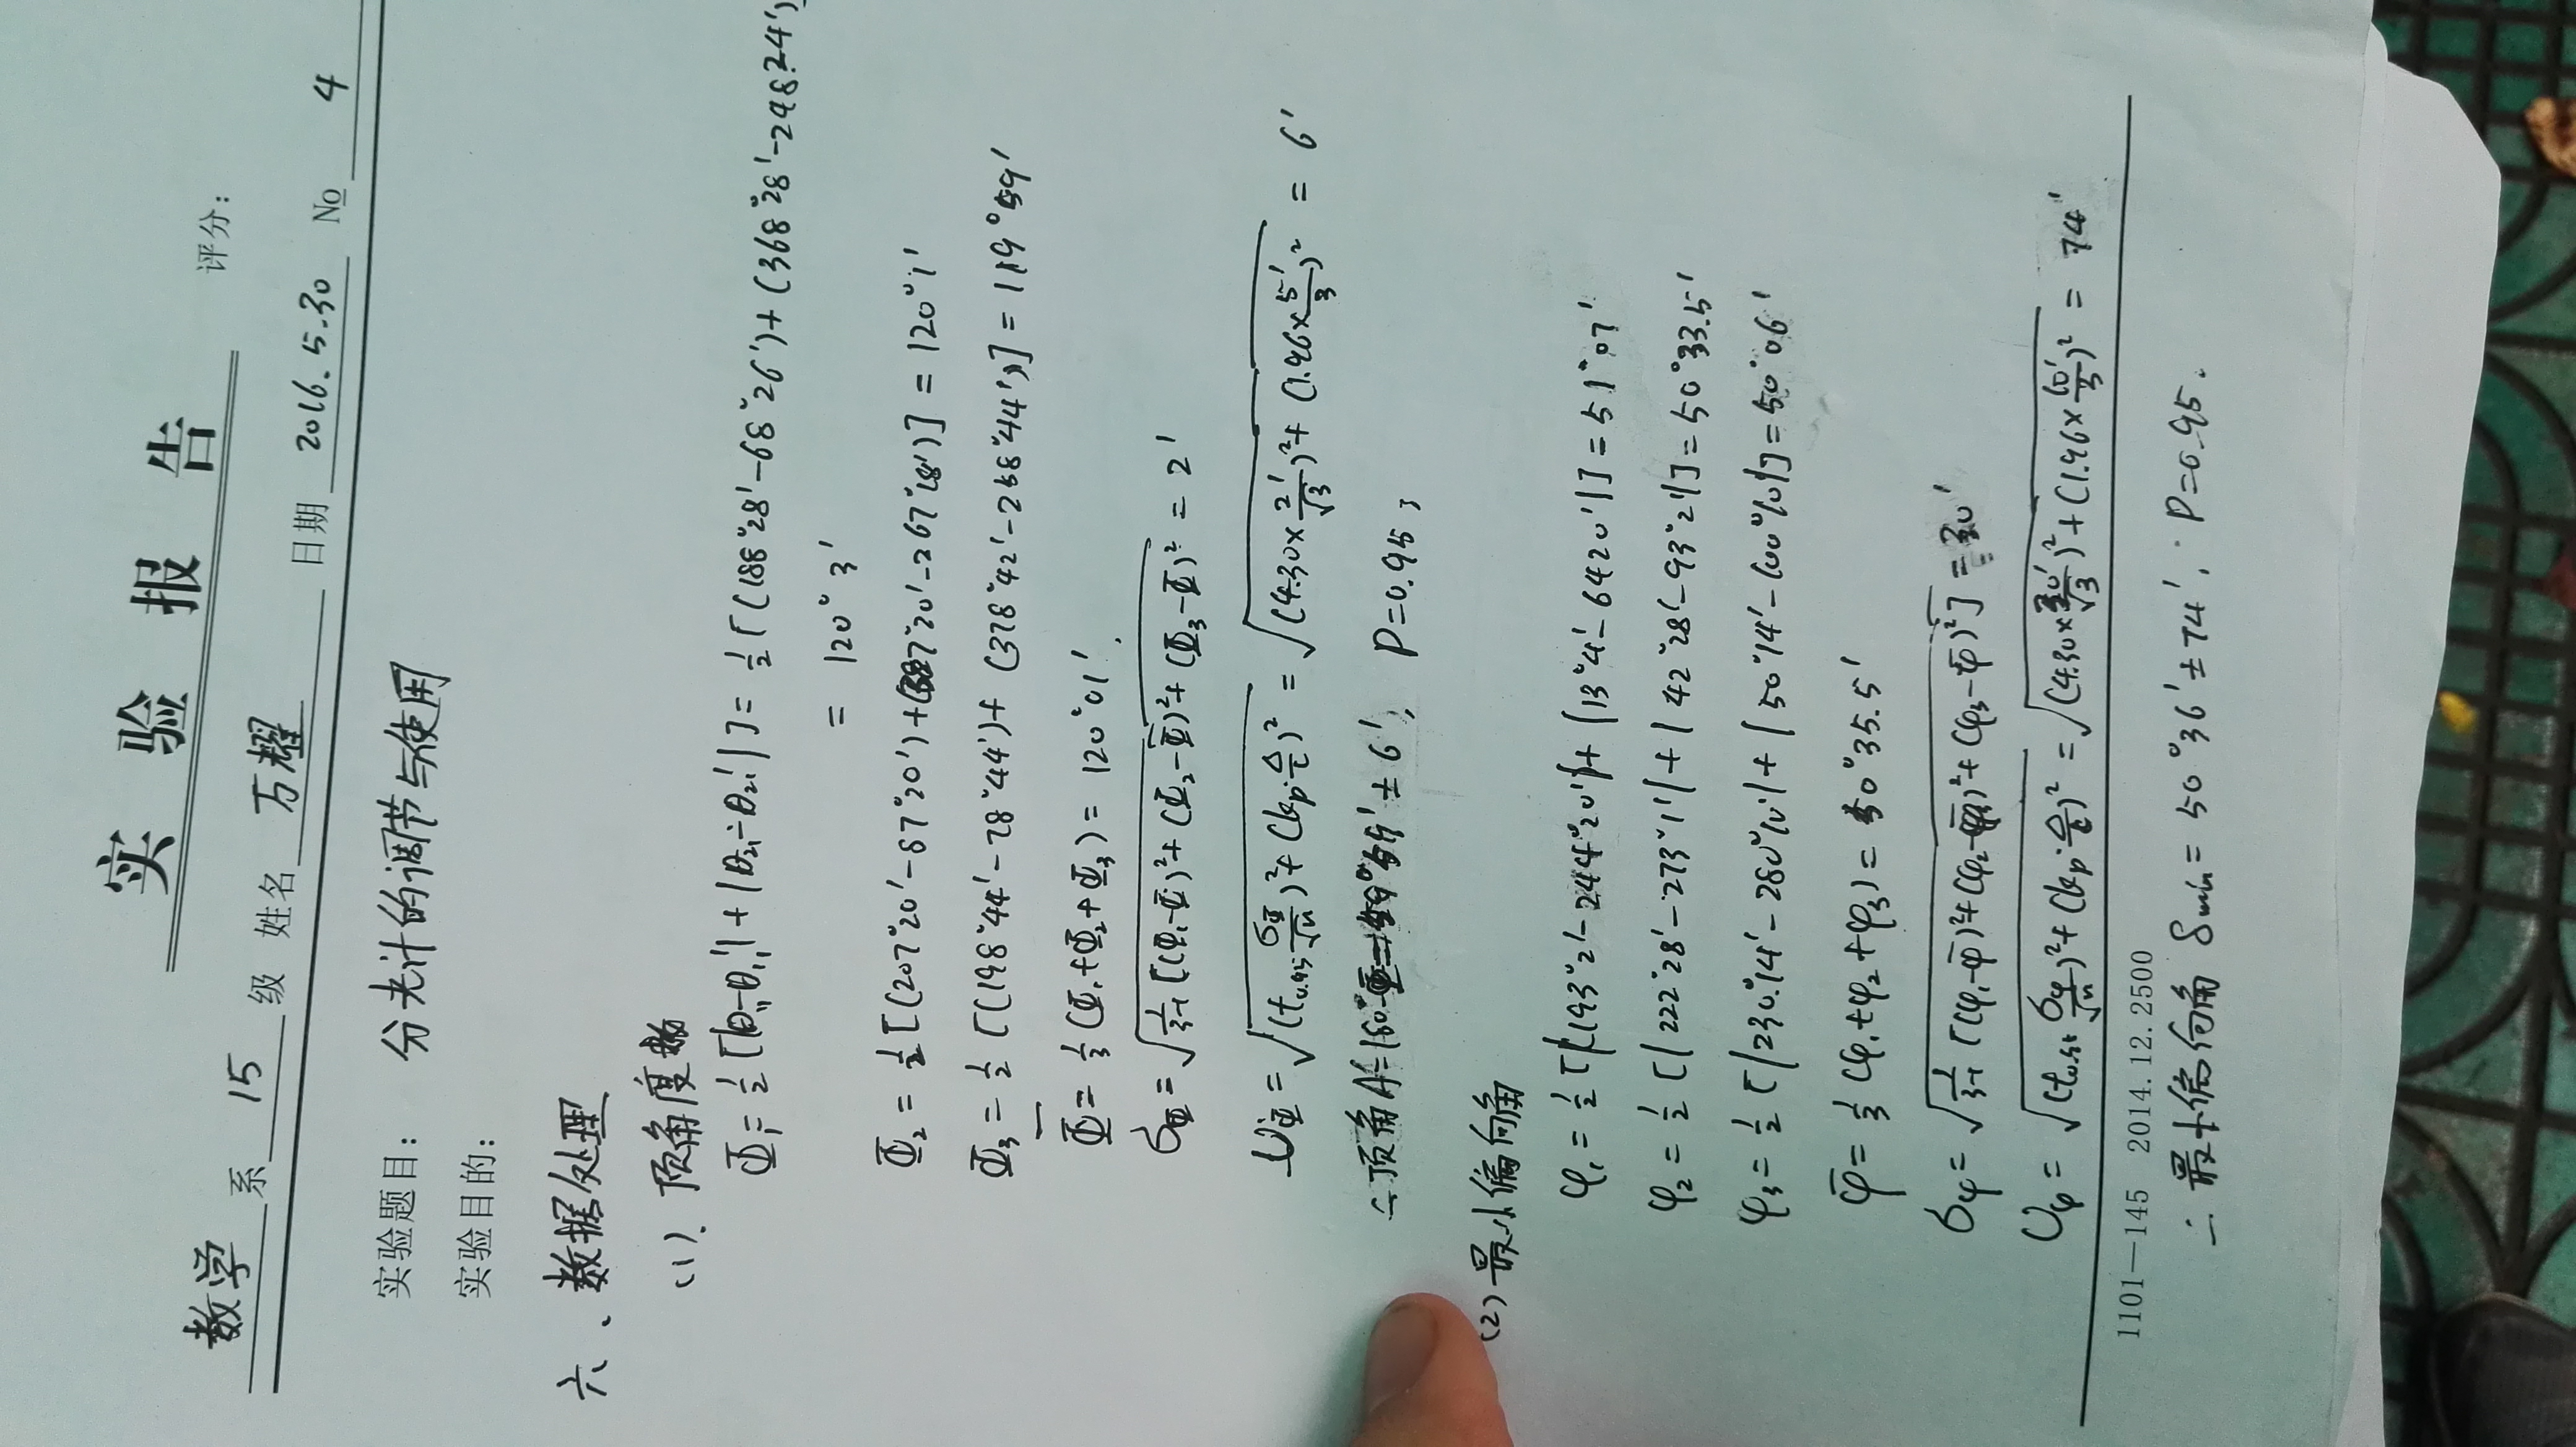 实 验 报 告
评分:
数学 系 15 级 姓名 万耀 日期 2016.5.30 No 4
实验题目: 分光计的调节与使用
实验目的:
六、数据处理
(1)、顶角度
Φ₁=½[|θ₁₁-θ₁₁'|+|θ₂₁-θ₂₁'|]=½[(188°28'-68°26')+(368°28'-248°24')
= 120°3'
Φ₂=½[(207°20'-87°20')+(387°20'-267°18')]=120°1'
Φ₃=½[(198°44'-78°44')+(378°42'-258°44')]=119°59'
Φ̄=⅓(Φ₁+Φ₂+Φ₃)=120°01'
σ_Φ=√(1/(3-1)[(Φ₁-Φ̄)²+(Φ₂-Φ̄)²+(Φ₃-Φ̄)²])=2'
U_Φ=√((t₀.₉₅ σ_Φ/√n)²+(k_p·Δ/C)²)=√((4.30×2'/√3)²+(1.96×5'/3)²)=6'
∴顶角A=180°-Φ̄=59°59'±6', P=0.95;
(2)最小偏向角
φ₁=½[|193°2'-244°20'|+|13°4'-64°20'|]=51°07'
φ₂=½[|222°28'-273°1'|+|42°28'-93°2'|]=50°33.5'
φ₃=½[|230°14'-280°10'|+|50°14'-100°10'|]=50°06'
φ̄=⅓(φ₁+φ₂+φ₃)=50°35.5'
σ_φ=√(1/(3-1)[(φ₁-φ̄)²+(φ₂-φ̄)²+(φ₃-φ̄)²])=30'
U_φ=√((t₀.₉₅ σ_φ/√n)²+(k_p·Δ/C)²)=√((4.30×30'/√3)²+(1.96×10'/3)²)=74'
1101—145 2014.12.2500
∴最小偏向角 δmin=50°36'±74', P=0.95.